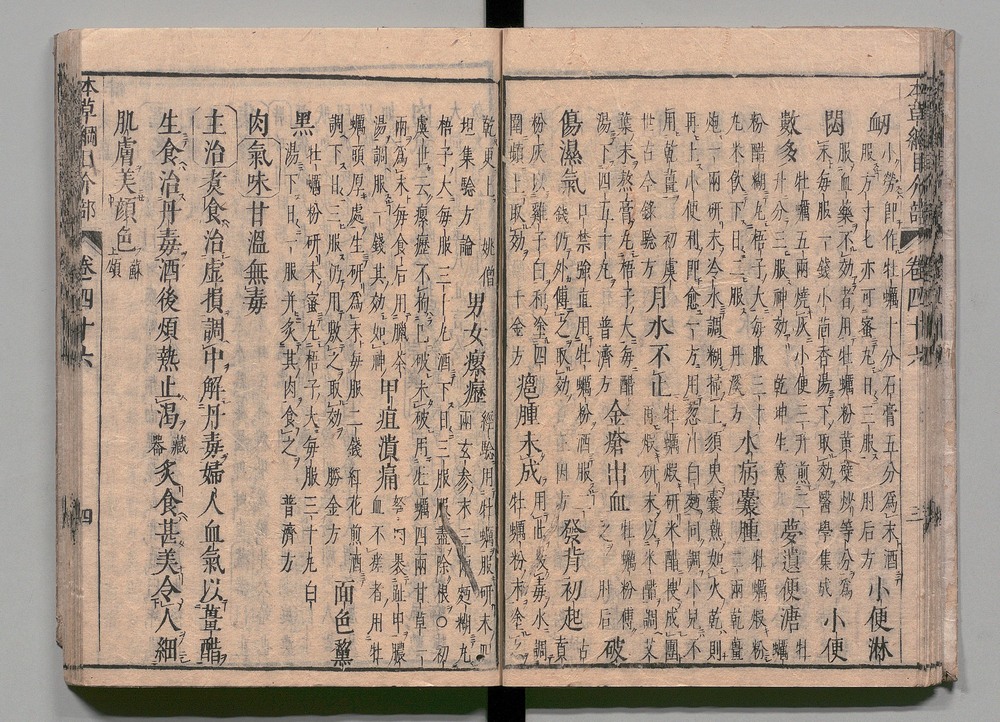 本草綱目介部 卷四十六 三
衂小勞即作牡蠣十分石膏五分爲末酒
服方寸匕亦可蜜丸日三服 肘后方 小便淋
悶服血藥不效者用牡蠣粉黃蘗炒等分爲
末每服一錢小茴香湯下取效醫學集成 小便
數多牡蠣五兩燒灰小便三升煎二
升分三服神效 乾坤生意 夢遺便溏牡蠣
粉醋糊丸梧子大每服三十
丸米飲下日二服 丹溪方 水病囊腫牡蠣煅粉
二兩乾薑
炮一兩研末冷水調糊掃上須臾囊熱如火乾則
再上小便利即愈一方用葱汁白麪同調小兒不
用乾薑 初虞
世古今錄驗方 月水不止牡蠣煅研米醋搜成團
再煅研末以米醋調艾
葉末熬膏丸梧子大每醋
湯下四五十丸 普濟方 金瘡出血牡蠣粉傅
之 肘后 破
傷濕氣口禁強直用牡蠣粉酒服二
錢仍外傅之取效 三因方 發背初起古
賁
粉灰以雞子白和塗四
圍頻上取效 千金方 癰腫未成用此拔毒水調
牡蠣粉末塗之
乾更上 姚僧
坦集驗方 男女瘰癧經驗用牡蠣煅研末四
兩玄參末三兩麪糊丸
梧子大每服三十丸酒下日三服服盡除根○初
虞世云瘰癧不拘已破未破用牡蠣四兩甘草一
兩爲末每食后用臘茶
湯調服一錢其效如神 甲疽潰痛胬肉裹趾甲膿
血不瘥者用牡
蠣頭厚處生研爲末每服二錢紅花煎酒
調下日三服仍用敷之取效 勝金方 面色黧
黑牡蠣粉研末蜜丸梧子大每服三十丸白
湯下日一服并炙其肉食之 普濟方
肉氣味甘溫無毒
主治煮食治虛損調中解丹毒婦人血氣以薑醋
生食治丹毒酒後煩熱止渴藏器炙食甚美令人細
肌膚美顏色蘇頌
本草綱目介部 卷四十六 四